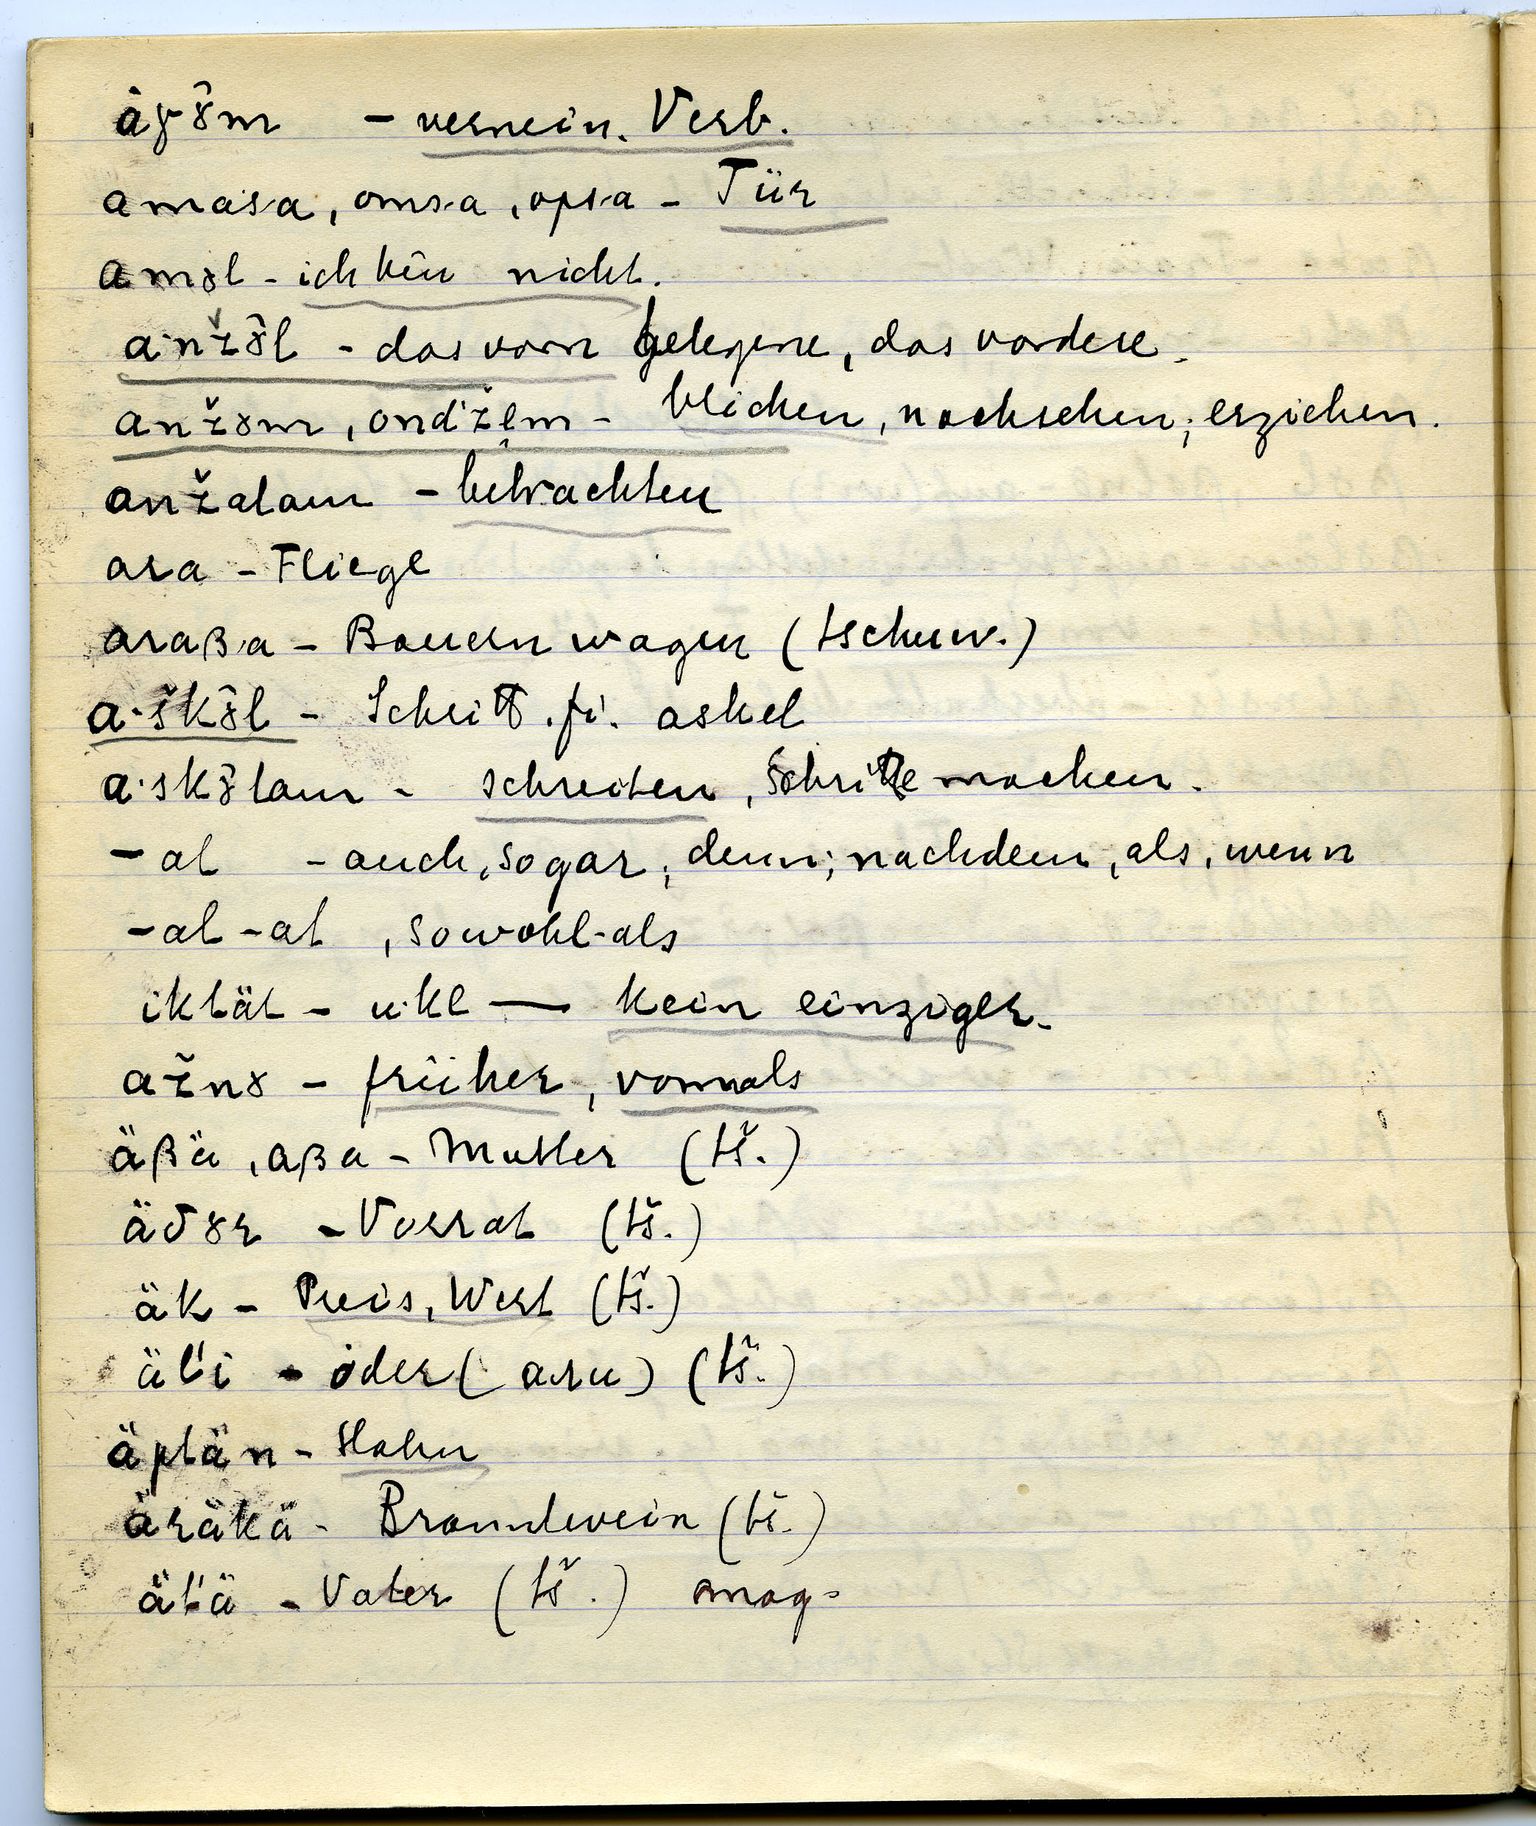 àɣə̂m – vernein. Verb.
amasa, omsa, opsa – Tür
aməl – ich bin nicht.
a·nžə̂l – das vorn gelegene, das vordere.
anžəm, ond'žêm – blicken, nachsehen; erziehen.
anžalam – betrachten
ara – Fliege
araβa – Bauernwagen (tschuw.)
a·škə̂l – Schritt. fi. askel
a·skə̂lam – schreiten, Schritte machen.
– at – auch, sogar, denn; nachdem, als, wenn
– at – at, sowohl-als
iktät – ikt — kein einziger.
ažnə – früher, vormals
äβä, aβa – Mutter (tš.)
äδər – Vorrat (tš.)
äk – Preis, Wert (tš.)
äl'i – oder (aru) (tš.)
äptän – Hahn
äräkä – Branntwein (tš.)
ät'ä – Vater (tš.)